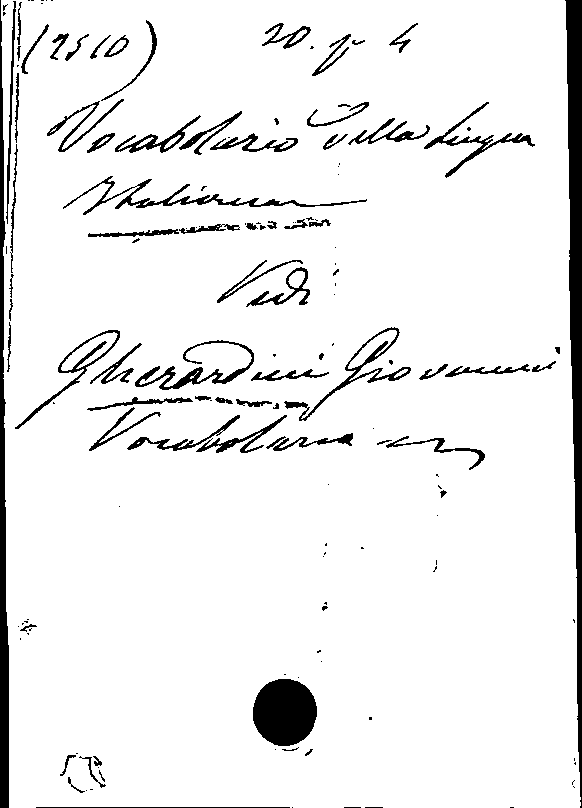 (2510) 20. p 4
Vocabolario della Lingua
Italiana
Vedi
Gherardini Giovanni
Vocabolario